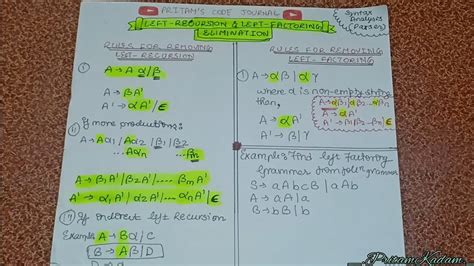 PRITAM'S CODE JOURNAL
LEFT-RECURSION & LEFT-FACTORING
ELIMINATION
Syntax
Analysis
(Parser)
RULES FOR REMOVING
LEFT-RECURSION
① A → Aα|β
A → βA'
A' → αA'|ϵ
II) If more productions:
A → Aα1|Aα2|β1|β2|
...Aαn ...βm
A → β1A'|β2A'|.... βmA'
A' → α1A'|α2A'|... αnA'|ϵ
If indirect left Recursion
Example A → Bα|C
B → Aβ|D
RULES FOR REMOVING
LEFT-FACTORING
① A → αβ|αγ
where α is non-empty string
then,
A → αA'
A' → β|γ
A → αβ1|αβ2...αβn
A → αA'
A' → β1|β2...βn
Example: Find left factoring
grammar from foll^n grammar
S → aAbcB|aAb
A → aA|a
B → bB|b
PritamKadam